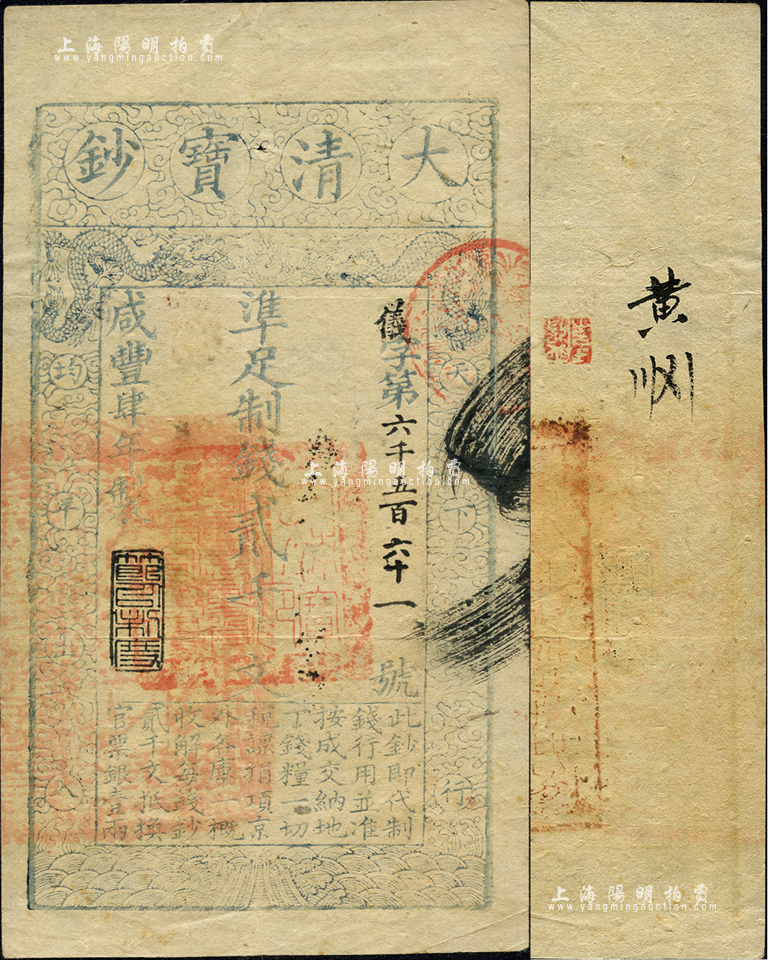 上海陽明拍賣
www.yangmingauction.com
大清寶鈔
天下
行
均平
儀字第六千五百六十一號
準足制錢貳千文
咸豐肆年製
此鈔即代制
錢行用並准
按成交納地
丁錢糧一切
稅課捐項京
外各庫一概
收解每錢鈔
貳千文抵換
官票銀壹兩
黃州
上海陽明拍賣
www.yangmingauction.com
上海陽明拍賣
www.yangmingauction.com